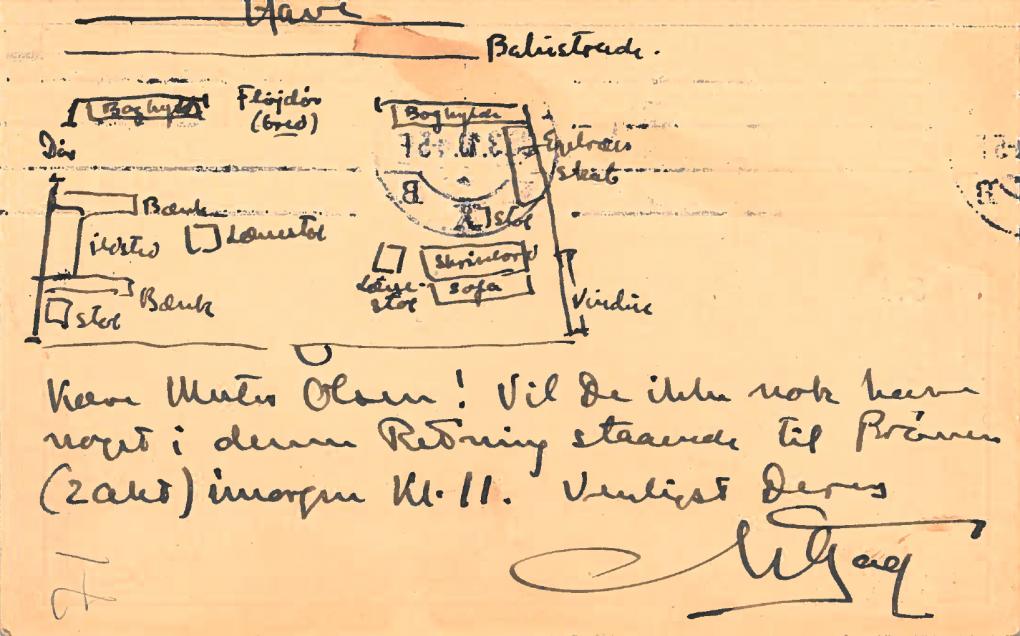 Have
Balustrade.
Boghylde
Fløjdør
(bred)
Boghylde
Dør
skab
Bænk
Stol
Ildsted
Lænestol
Skrivebord
Læne-
stol
Sofa
Bænk
Vindue
Stol
Kære Mester Olsen! Vil De ikke nok have
noget i denne Retning staaende til Prøven
(2 akt) imorgen Kl. 11. Venligst Deres